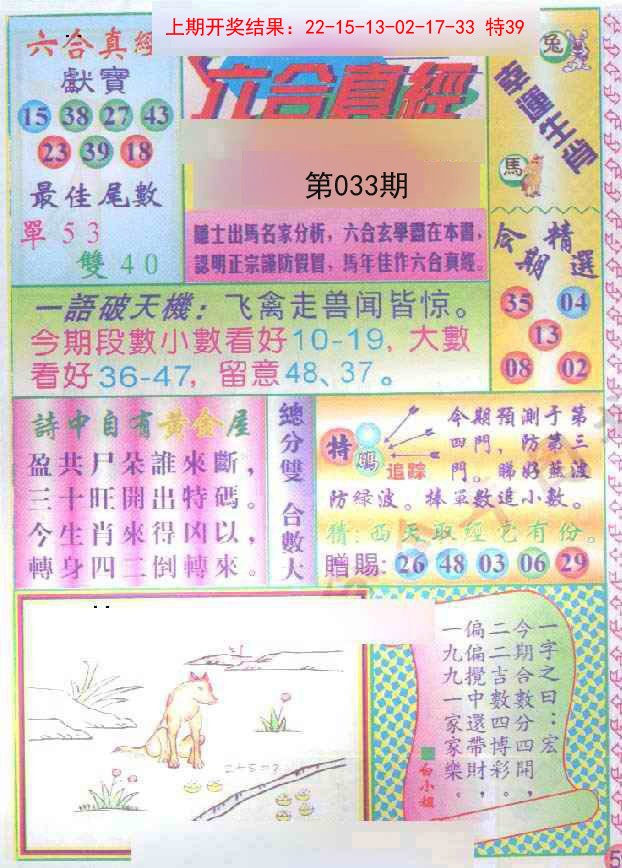 上期开奖结果：22-15-13-02-17-33 特39
六合真經
獻寶
15 38 27 43
23 39 18
最佳尾數
單 5 3
雙 4 0
六合真經
第033期
隱士出馬名家分析，六合玄學盡在本書，
認明正宗謹防假冒，馬年佳作六合真經。
兔
幸運生肖
馬
今期精選
35 04
13
08 02
一語破天機：飞禽走兽闻皆惊。
今期段數小數看好10-19，大數
看好36-47，留意48、37。
詩中自有黃金屋
盈共尸朵誰來斷，
三十旺開出特碼。
今生肖來得凶以，
轉身四二倒轉來。
總分雙 合數大
特碼
追踪
今期預測于第
四門，防第三
門。睇好蓝波
防绿波。捧單数追小數。
猜：西天取經它有份。
贈賜：26 48 03 06 29
2+5=?
一字之曰：宏
今期合數分四開，
二二吉數四博彩。
偏偏攪中還帶財，
一九九一家家樂。
白小姐
5